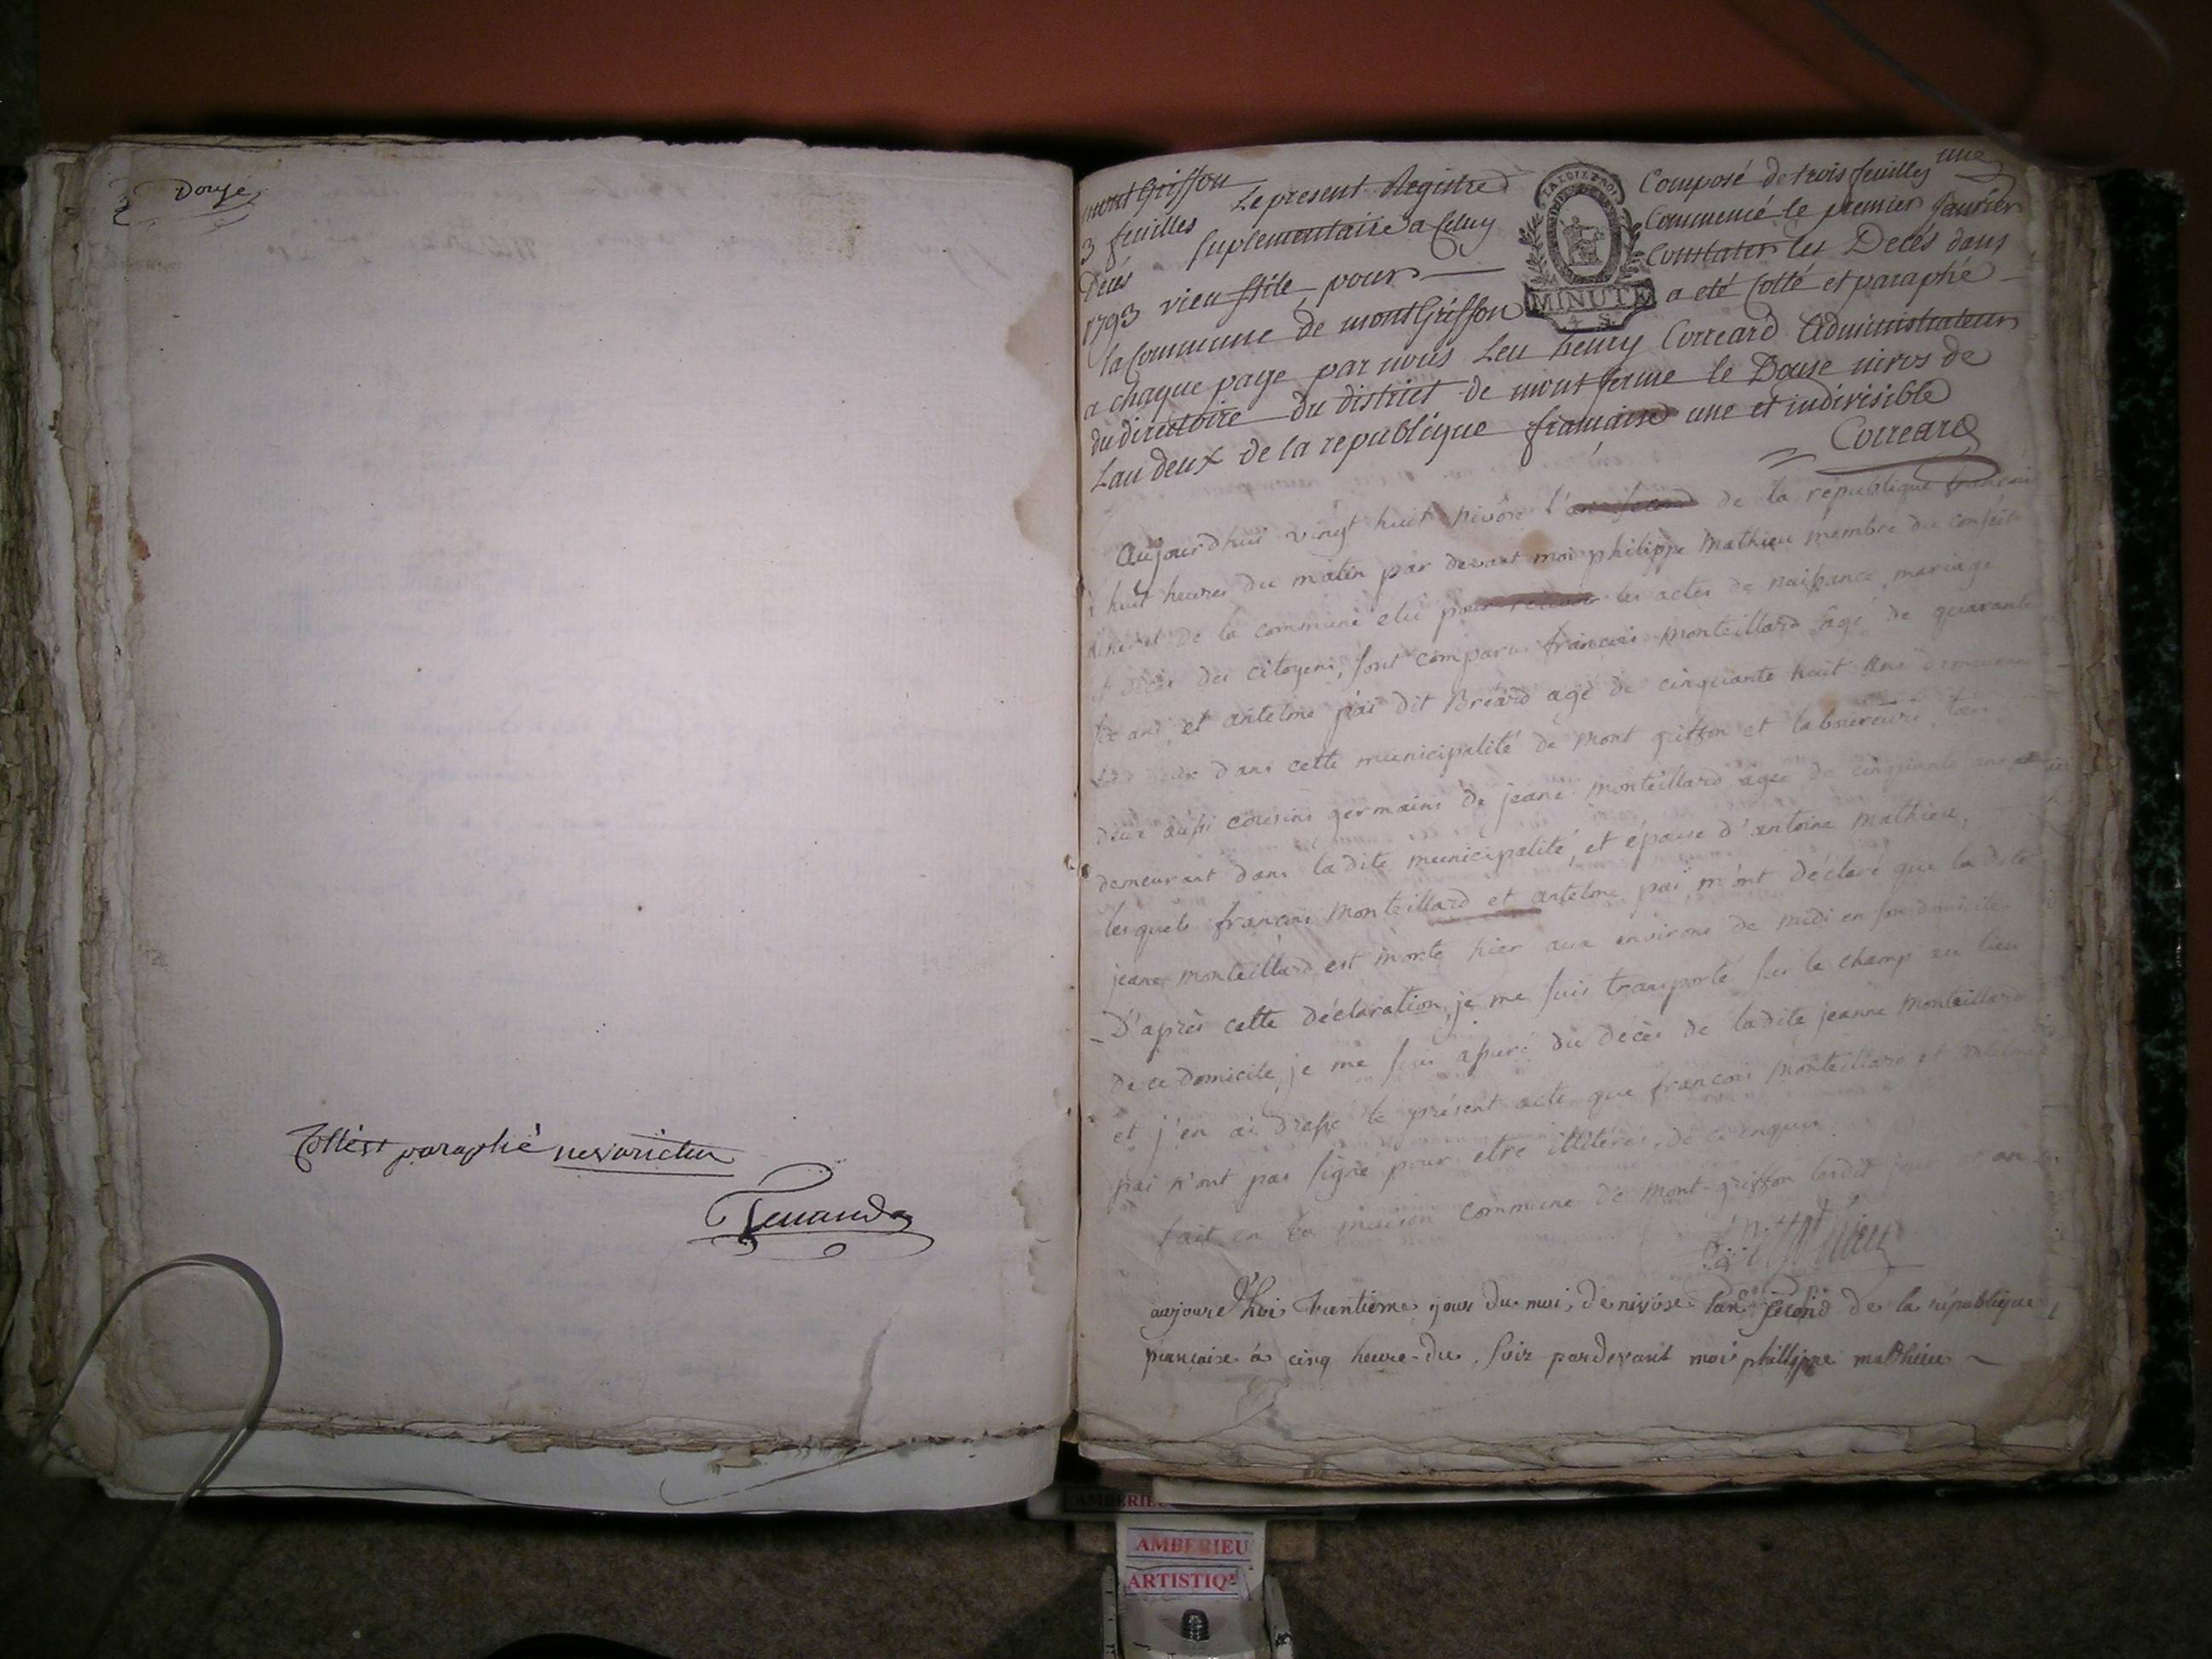 Douze
Cotté et paraphé nevarietur
une
montGriffon
3 feuilles
Décés
Le present Registre Composé de trois feuilles
suplementaire a Celuy Commencé le premier Janvier
1793 vieu stile, pour Constater les Decés dans
LA LOI ET LE ROI
MINUTE
4 S.
la Commune de montGriffon a eté Cotté et paraphé
a chaque page par nous Leu henry Correard Administrateur
du directoire du district de montferme le Douse nivos de
L'an deux de la republique francaise une et indivisible
Correard
Aujourdhui vingt huit nivôse l'an second de la république françoise
à huit heures du matin par devant moi philippe Mathieu membre du conseil
général de la commune elu pour recevoir les actes de naissance, mariage
et décès des citoyens, sont comparus françois Monteillard agé de quarante
six ans, et antelme pai dit Bréard agé de cinquante huit ans demeurant
tous deux dans cette municipalité de Mont griffon et laboureurs, tous
deux aussi cousins germains de jeane Monteillard agée de cinquante ans
demeurant dans ladite municipalité, et épouse d'antoine Mathieu,
lesquels françois Monteillard et antelme pai, m'ont déclaré que la dite
jeane Monteillard est morte hier aux environs de midi en son domicile.
D'après cette déclaration, je me suis transporté sur le champ au lieu
de ce domicile, je me suis assuré du décès de ladite jeanne Monteillard
et j'en ai dressé le présent acte que françois Monteillard et antelme
pai n'ont pas signé pour etre illiterés, de ce enquis.
fait en la maison commune de Mont-griffon lesdit jour et an
Mathieu
aujourd'hui trentième jour du mois de nivose l'an second de la république
française à cinq heure du soir pardevant moi phillippe mathieu
AMBERIEU
AMBERIEU
ARTISTIQ